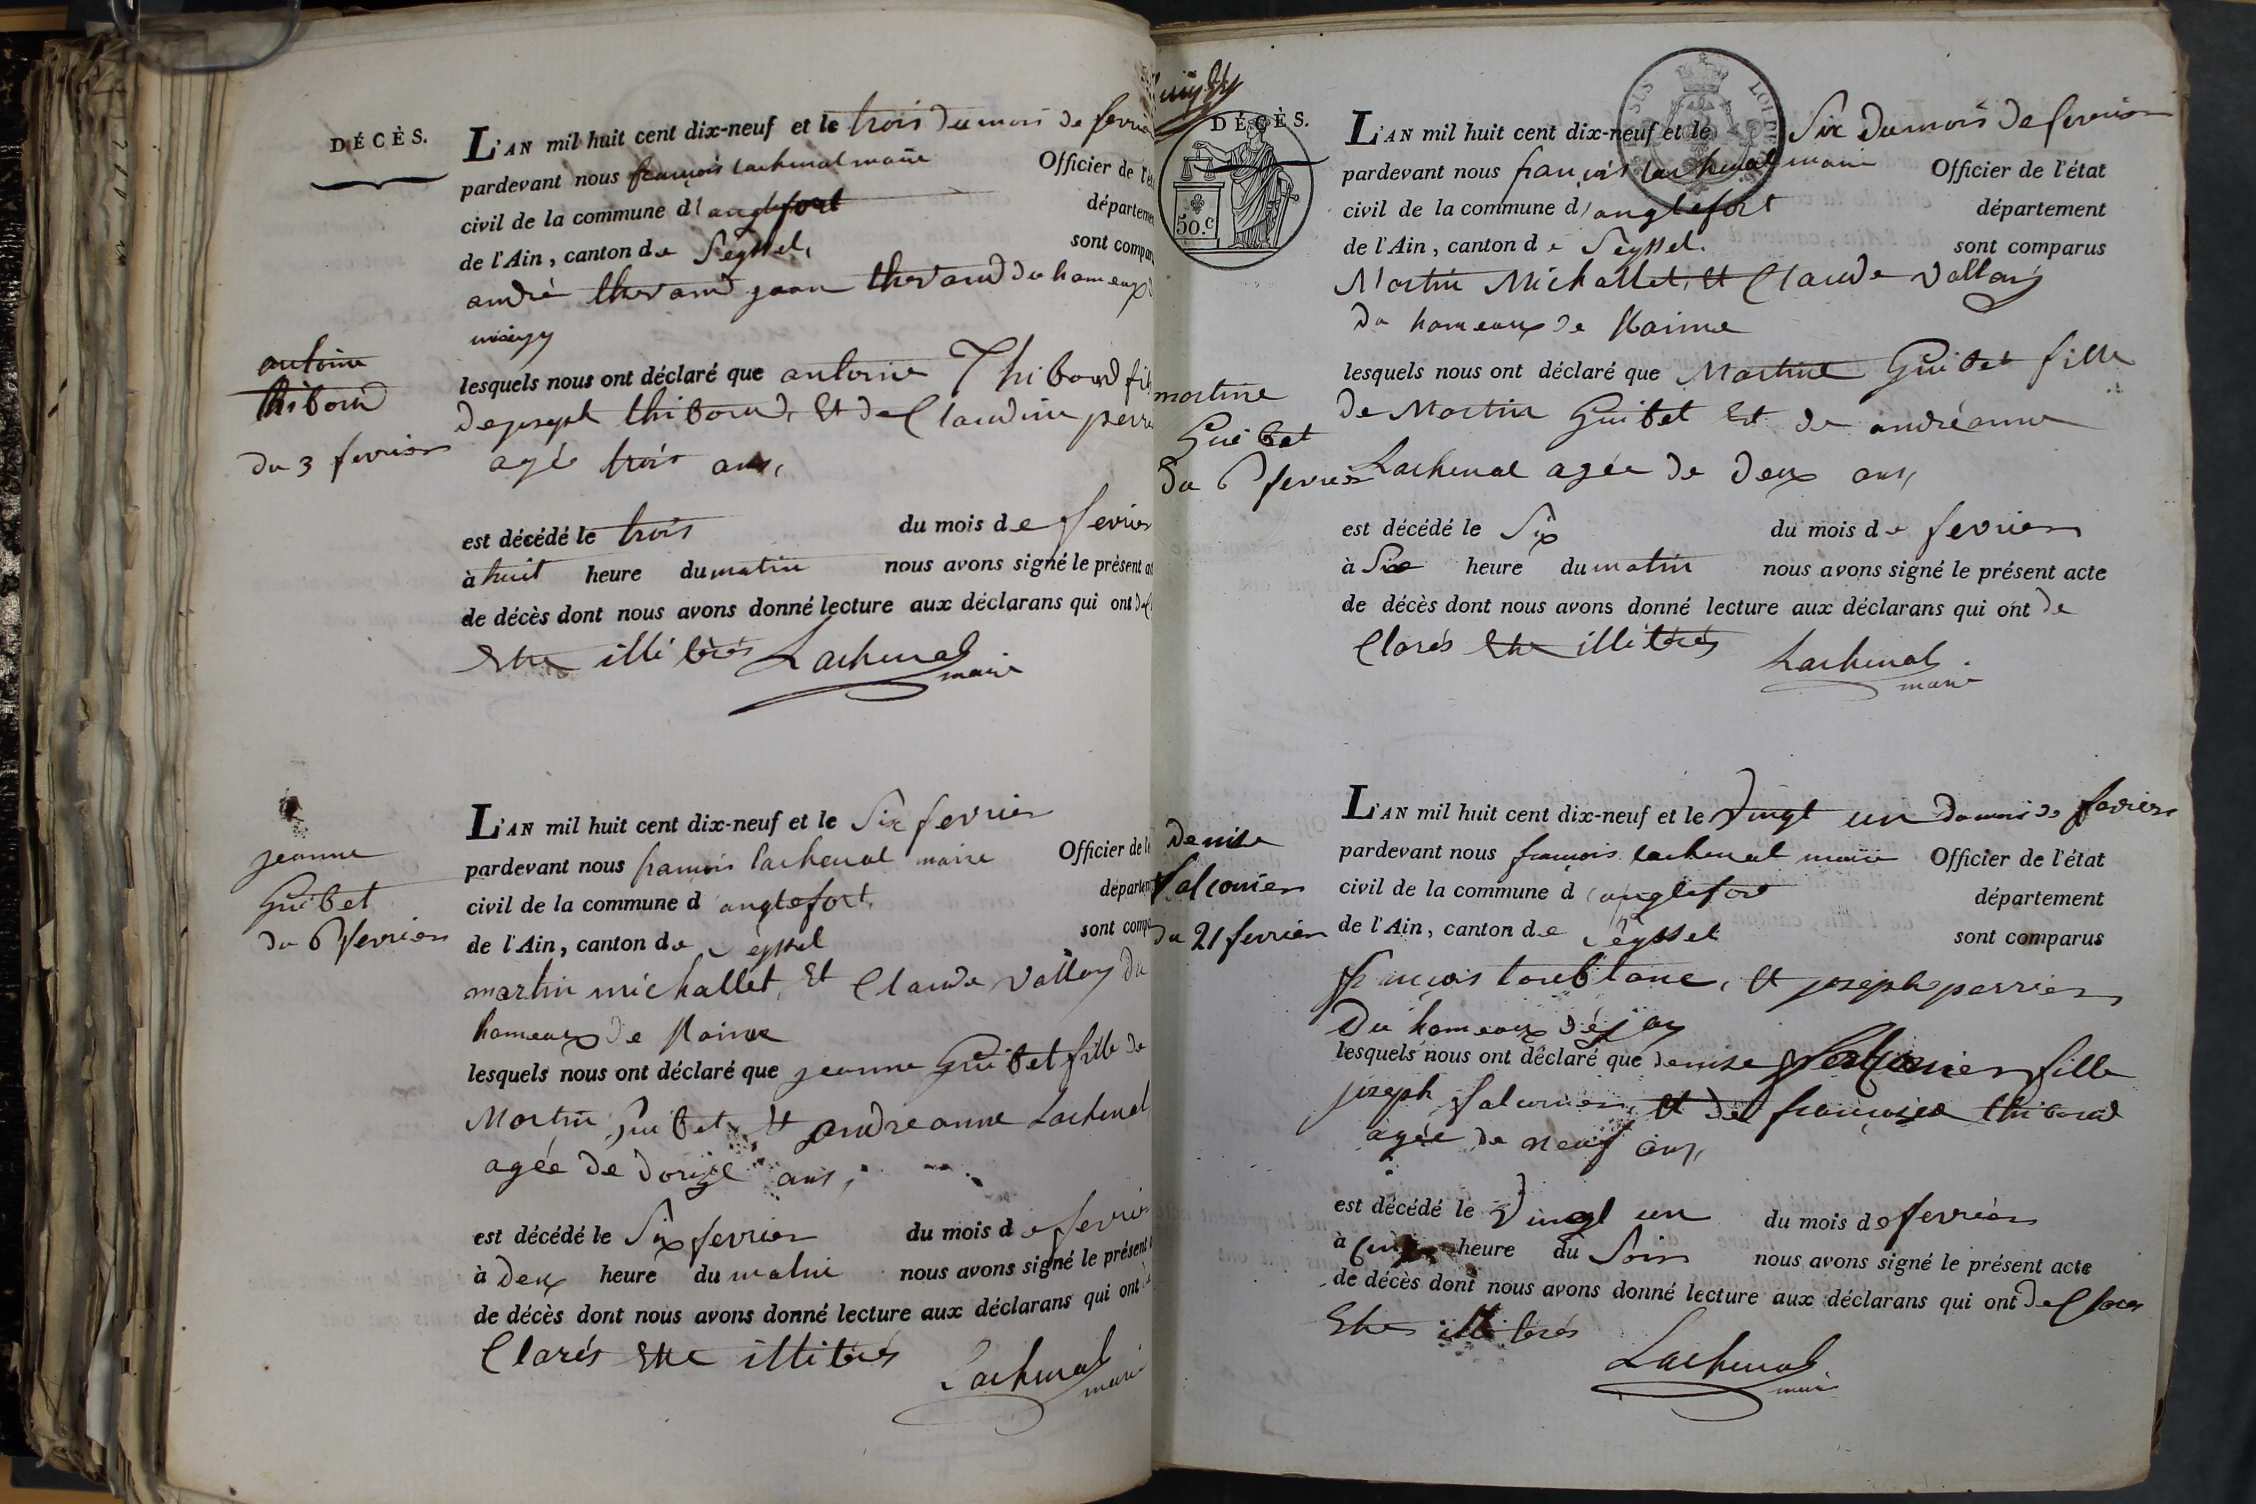 DÉCÈS.
L'AN mil huit cent dix-neuf et le trois du mois de fevrier
pardevant nous françois Lachenal maire Officier de l'ét
civil de la commune d'anglefort départeme
de l'Ain, canton de Seyssel, sont compar
andré thevand jean thevand du hameaux
antoine
thiboud
du 3 fevrier
lesquels nous ont déclaré que antoine Thiboud fil
de joseph thiboud, Et de Claudine perr
agée trois ans,
est décédé le trois du mois de fevrier
à huit heure du matin nous avons signé le présent a
de décès dont nous avons donné lecture aux déclarans qui ont
Etre illiterés Lachenal
maire
jeanne
Guibet
du 6 fevrier
L'AN mil huit cent dix-neuf et le Six fevrier
pardevant nous francois Lachenal maire Officier de l'é
civil de la commune d anglefort, départem
de l'Ain, canton de Seyssel sont compa
martin michallet, Et Claude Vallay du
hameaux de
lesquels nous ont déclaré que jeanne Guibet fille de
Martin Guibet Et andreanne Lachenal
agée de douze ans,
est décédé le Six fevrier du mois de fevrier
à deux heure du matin nous avons signé le présent
de décès dont nous avons donné lecture aux déclarans qui ont dé
Clarés Etre illiterés
Lachenal
maire
DÉCÈS.
50.c
L'AN mil huit cent dix-neuf et le Six du mois de fevrier
pardevant nous françois Lachenal maire Officier de l'état
civil de la commune d'anglefort département
de l'Ain, canton de Seyssel. sont comparus
Martin Michallet, Et Claude Vallay
du hameaux de
martine
Guibet
du 6 fevrier
lesquels nous ont déclaré que Martine Guibet fille
de Martin Guibet Et de andréanne
Lachenal agée de deux ans,
est décédé le Six du mois de fevrier
à Six heure du matin nous avons signé le présent acte
de décès dont nous avons donné lecture aux déclarans qui ont de
Clarés Etre illiterés
Lachenal
maire
denise
falconier
du 21 fevrier
L'AN mil huit cent dix-neuf et le Vingt un du mois de fevrier
pardevant nous françois Lachenal maire Officier de l'état
civil de la commune d'anglefort département
de l'Ain, canton de Seyssel sont comparus
françois loublanc, Et joseph perrier
du hameaux
lesquels nous ont déclaré que denise falconier fille
joseph falconier, Et de françoise thiboud
agée de neuf ans,
est décédé le Vingt un du mois de fevrier
à heure du Soir nous avons signé le présent acte
de décès dont nous avons donné lecture aux déclarans qui ont de Clares
Etre illiterés
Lachenal
maire